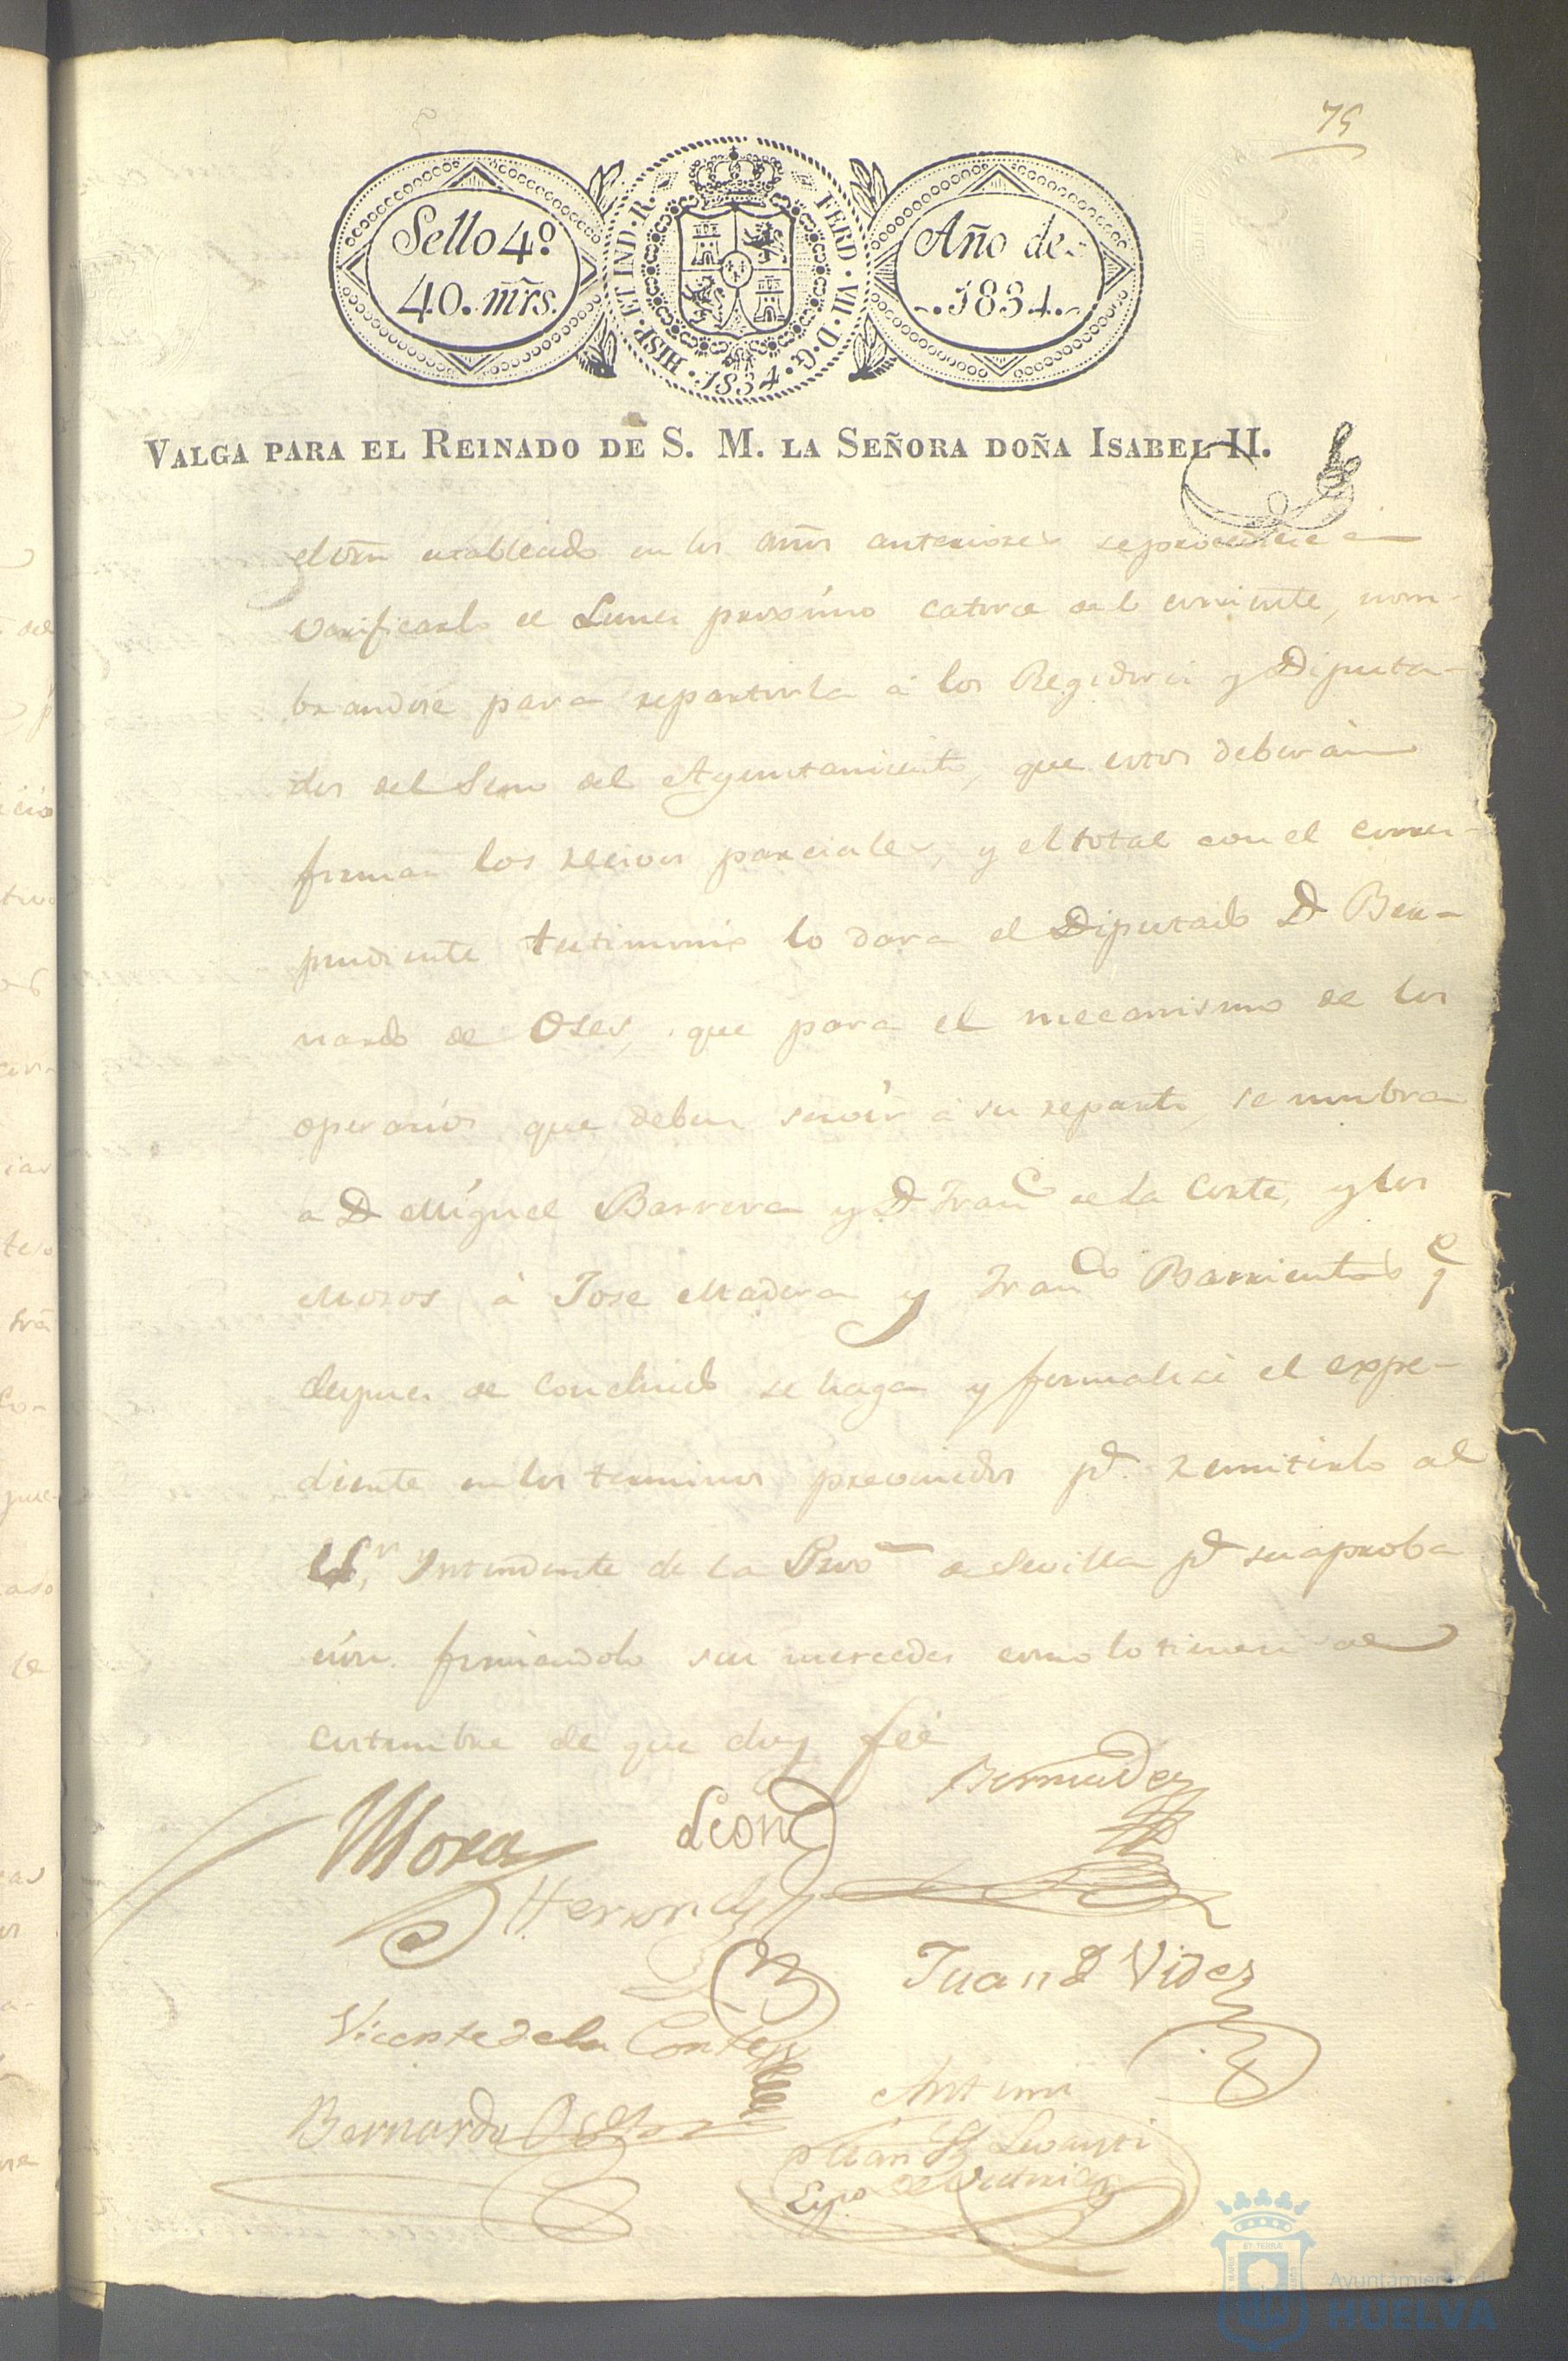 75
Sello 4º
40. mrs.
HISP. ET IND. R.
FERD. VII. D. G.
1834
Año de
1834.
VALGA PARA EL REINADO DE S. M. LA SEÑORA DOÑA ISABEL II.
el orn establecido en los años anteriores se procediese á
verificarlo el Lunes prosimo catorce del corriente, nom-
brandose para repartirla á los Regidores y Diputa-
dos del Seno del Ayuntamiento, que estos deberán
firmar los recivos parciales, y el total con el corres-
pondiente testimonio lo dara el Diputado D Ber-
nardo de Oses, que para el mecanismo de los
operarios que deben servir á su reparto, se nombra
a D Miguel Barrera y D. Franco de la Corte, y los
Mozos á Jose Madera y Franco Barrientos q
despues de concluido se haga y formalice el expe-
diente en los terminos prevenidos pa remitirlo al
Sr, Yntendente de la Prova de Sevilla pa su aproba
cion firmandolo sus mercedes como lo tienen de
costumbre de que doy feé
Mora
Leon
Bermudez
Hernandz
Juan de Vides
Vicente de la Corte
Bernardo Oses
Ante mi
Esno